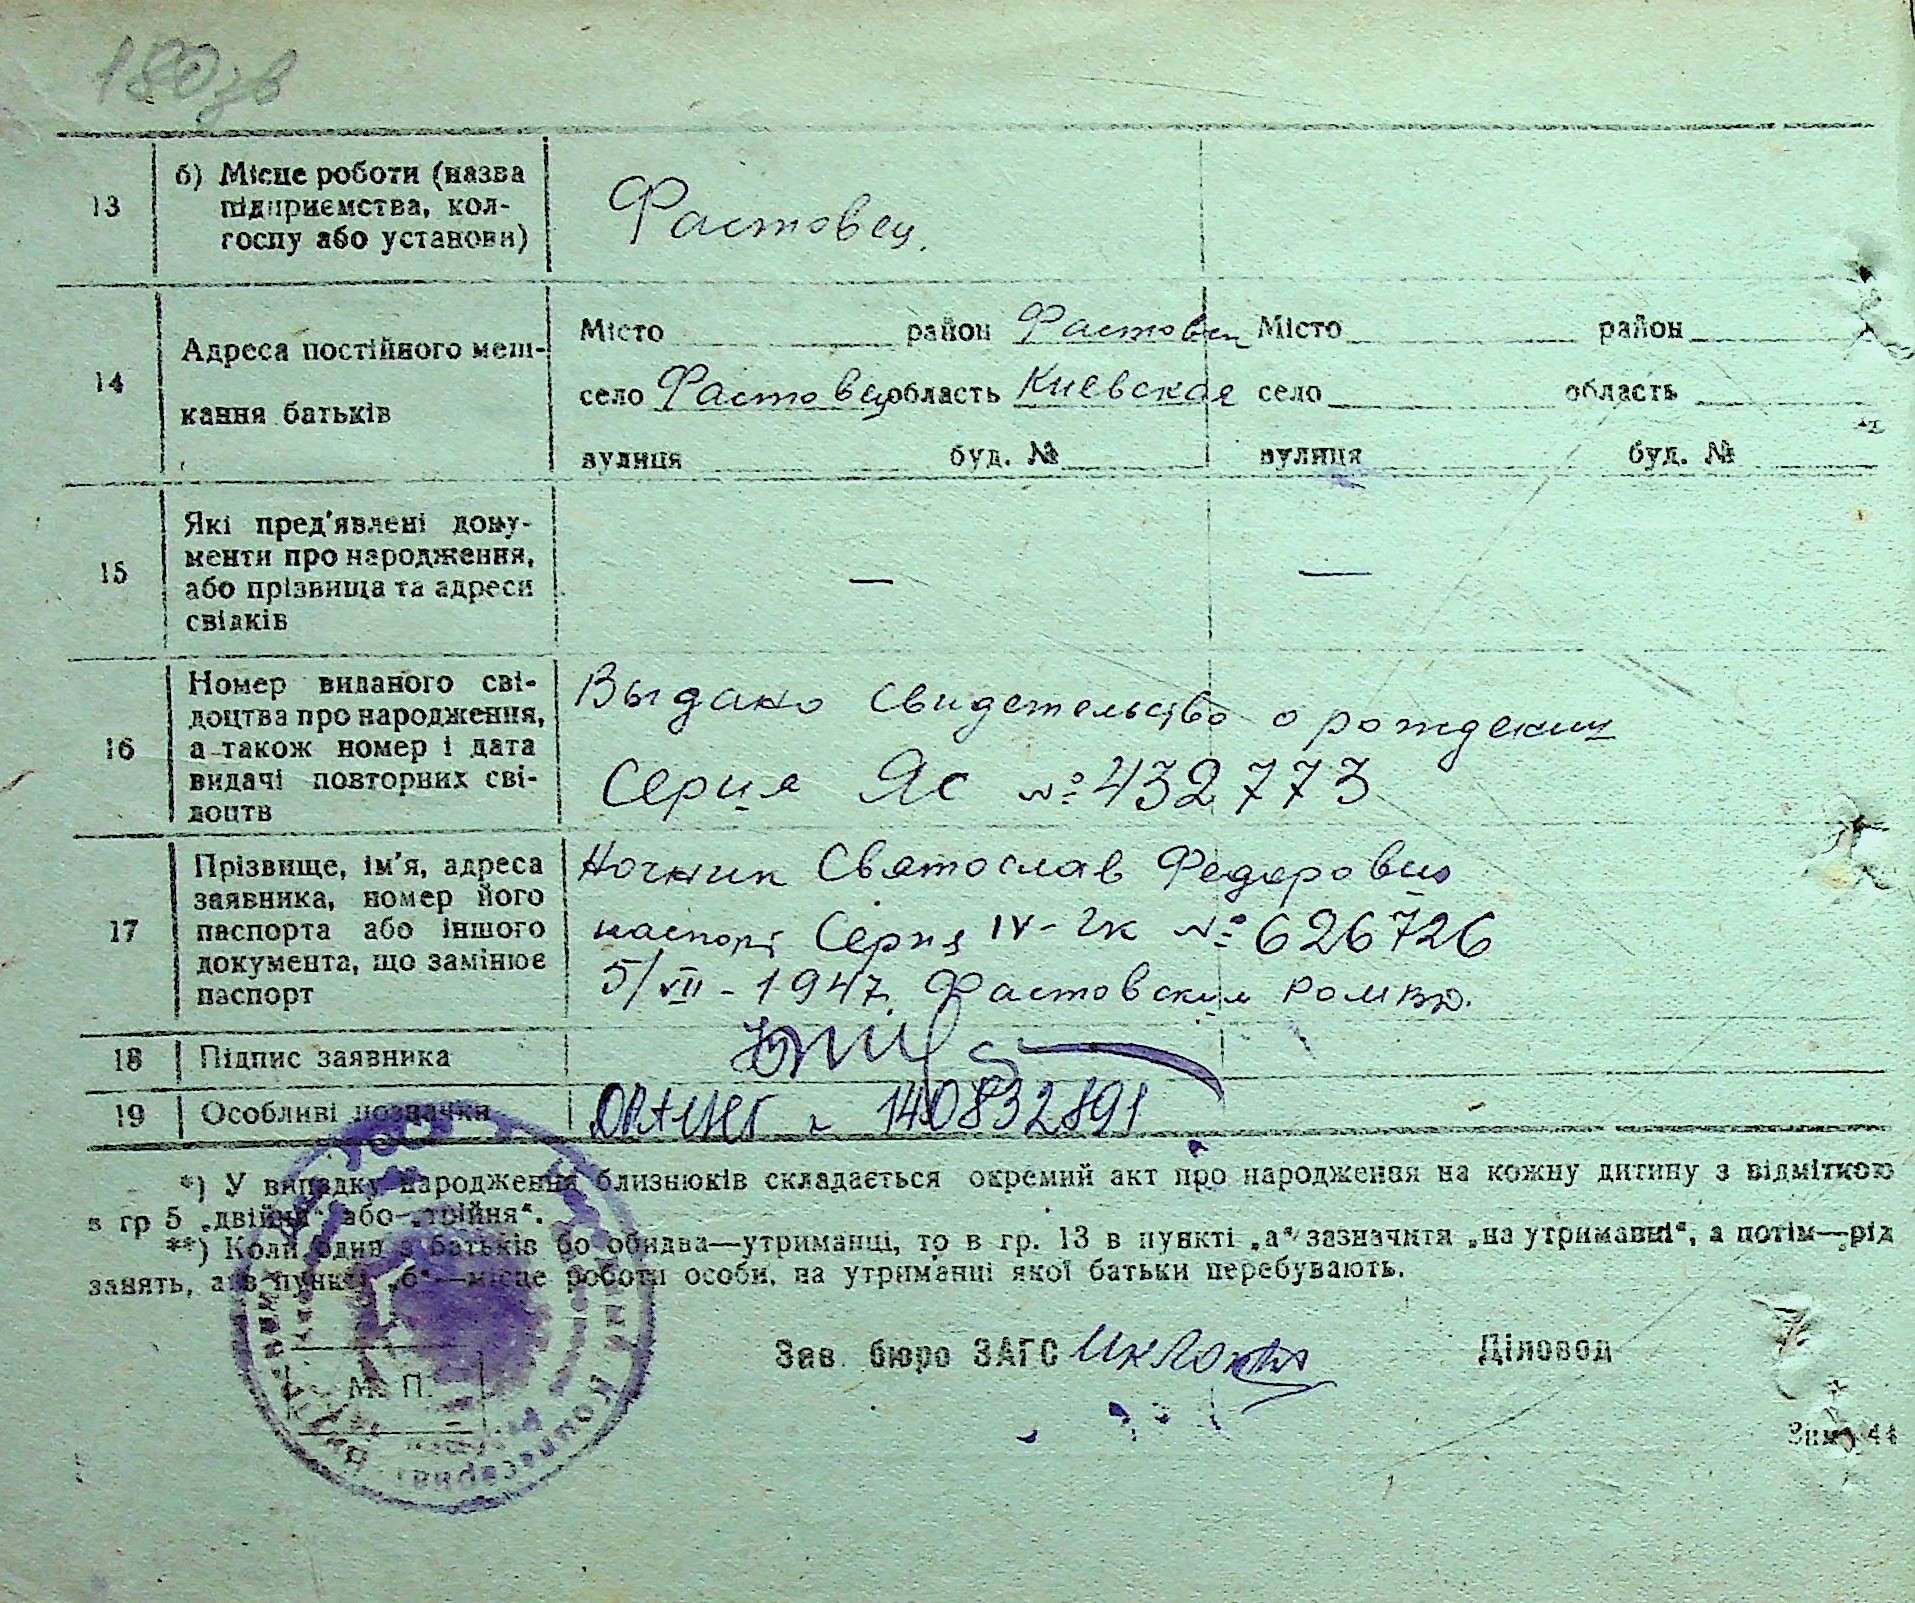 180 зв
13
б) Місце роботи (назва
підприємства, кол-
госпу або установи)
Фастовец.
14
Адреса постійного меш-
кання батьків
Місто район Фастовец Місто район
село Фастовец область Киевская село область
вулиця буд. № вулиця буд. №
15
Які пред'явлені доку-
менти про народження,
або прізвища та адреси
свідків
— —
16
Номер виданого сві-
доцтва про народження,
а також номер і дата
видачі повторних сві-
доцтв
Выдано свидетельство о рождении
Серия ЯС № 432773
17
Прізвище, ім'я, адреса
заявника, номер його
паспорта або іншого
документа, що замінює
паспорт
Ночник Святослав Федорович
паспорт Серия IV-ЧК № 626726
5/VII-1947. Фастовским РОМВД.
18 Підпис заявника
19 Особливі позначки
140832891
*) У випадку народження близнюків складається окремий акт про народження на кожну дитину з відміткою
в гр 5 „двійня" або „трійня".
**) Коли один з батьків бо обидва—утриманці, то в гр. 13 в пункті „а" зазначити „на утриманні", а потім—рід
занять, а в пункті „б"—місце роботи особи, на утриманці якої батьки перебувають.
Зав. бюро ЗАГС Діловод
М. П.